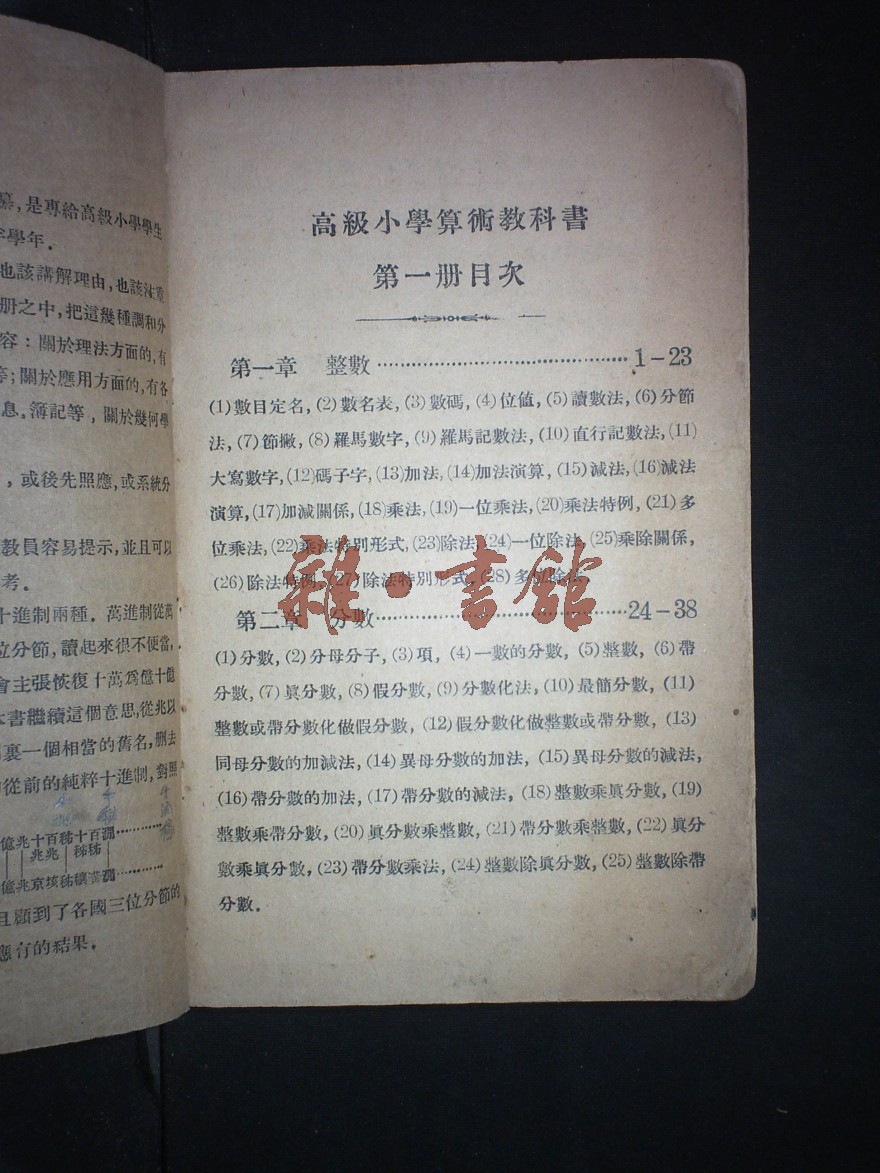 綦,是專給高級小學學生
學年.
也該講解理由,也該注重
册之中,把這幾種調和分
容:關於理法方面的,有
等;關於應用方面的,有各
息,簿記等,關於幾何學
,或後先照應,或系統分
教員容易提示,並且可以
考.
十進制兩種.萬進制從萬
位分節,讀起來很不便當,
會主張恢復十萬爲億十億
本書繼續這個意思,從兆以
裏一個相當的舊名,删去
從前的純粹十進制,對照
億兆十百秭十百澗…………
兆兆 秭秭
億兆京垓秭穰溝澗…………
且顧到了各國三位分節的
應有的結果.
高級小學算術教科書
第一册目次
第一章 整數……………………………………1-23
(1)數目定名,(2)數名表,(3)數碼,(4)位値,(5)讀數法,(6)分節
法,(7)節撇,(8)羅馬數字,(9)羅馬記數法,(10)直行記數法,(11)
大寫數字,(12)碼子字,(13)加法,(14)加法演算,(15)減法,(16)減法
演算,(17)加減關係,(18)乘法,(19)一位乘法,(20)乘法特例,(21)多
位乘法,(22)乘法特別形式,(23)除法,(24)一位除法,(25)乘除關係,
(26)除法特例,(27)除法特別形式,(28)多位除法,
第二章 分數……………………………………24-38
(1)分數,(2)分母分子,(3)項,(4)一數的分數,(5)整數,(6)帶
分數,(7)眞分數,(8)假分數,(9)分數化法,(10)最簡分數,(11)
整數或帶分數化做假分數,(12)假分數化做整數或帶分數,(13)
同母分數的加減法,(14)異母分數的加法,(15)異母分數的減法,
(16)帶分數的加法,(17)帶分數的減法,(18)整數乘眞分數,(19)
整數乘帶分數,(20)眞分數乘整數,(21)帶分數乘整數,(22)眞分
數乘眞分數,(23)帶分數乘法,(24)整數除眞分數,(25)整數除帶
分數.
雜·書館